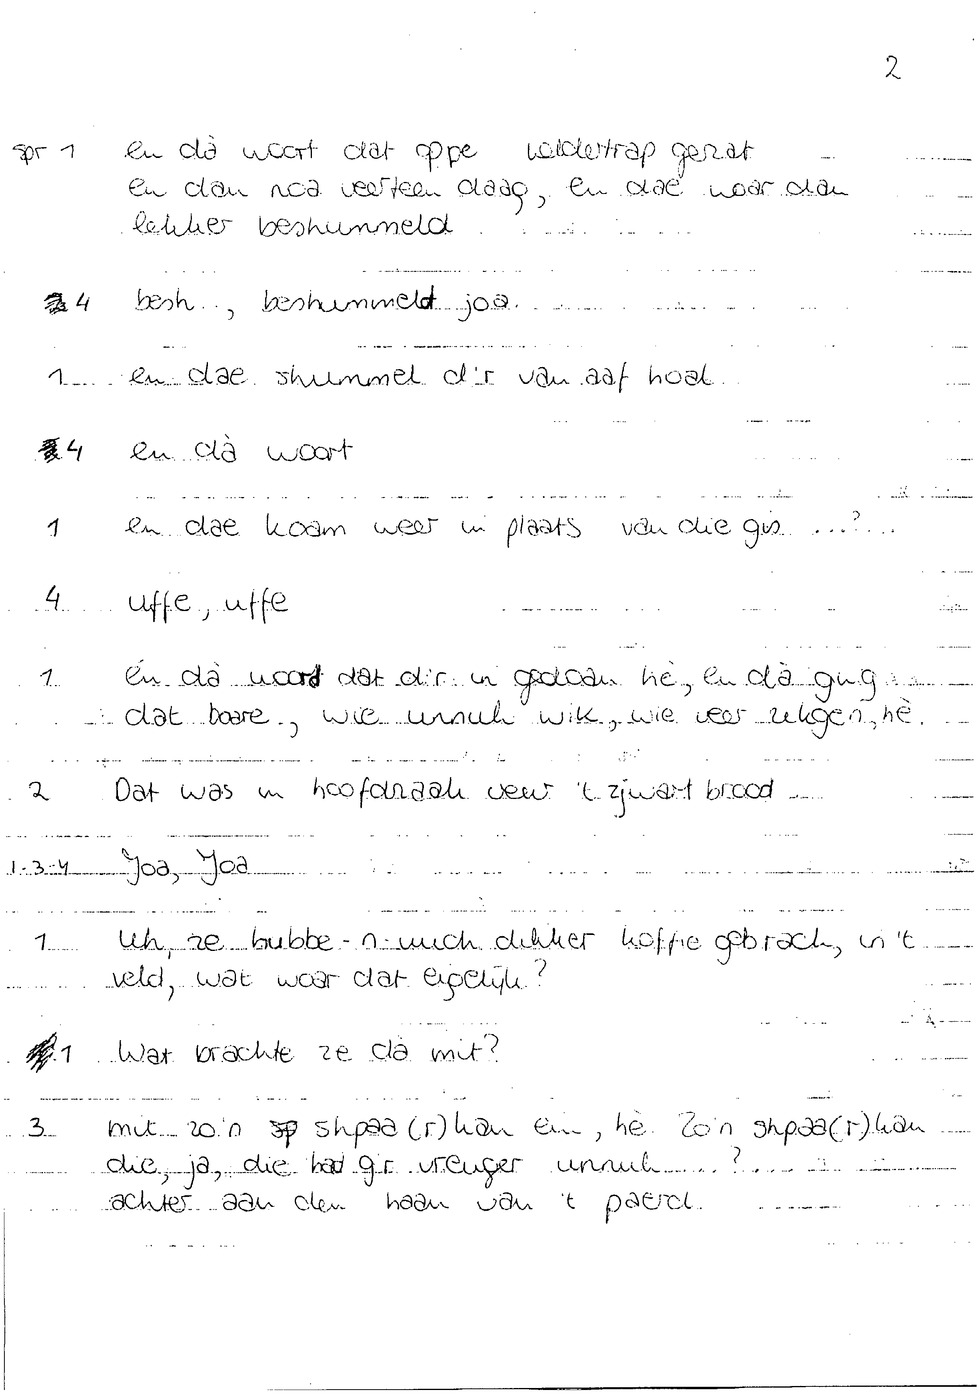 2
spr 1 en dà woort dat oppe keldertrap gezat
en dan noa veerteen daag, en dae woar dan
lekker beshummeld
4 besh.., beshummeld joa.
1 en dae shummel d'r van aaf hoal
4 en dà woort
1 en dae koam weer in plaats van die gis ...?...
4 uffe, uffe
1 en dà woord dat d'r in gedoan hè, en dà ging
dat boare, wie unnuk wik, wie veer zekgen, hè.
2 Dat was in hoofdzaak veur 't zjwart brood
1-3-4 Joa, Joa
1 Uh, ze hubbe-n-uuch dikker koffie gebrach, in 't
veld, wat woar dat eigelijk?
1 Wat brachte ze dà mit?
3 mit zo'n shpaa(r)kan ein, hè. Zo'n shpaa(r)kan
die, ja, die had g'r vreuger unnuk ...?...
achter aan den haan van 't paerd.